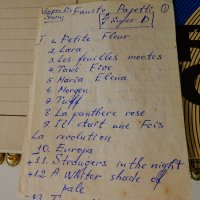 Fausto Papetti
Super
I. 1. Petite Fleur
2. Lara
3. Les feuilles mortes
4. Take Five
5. Maria Elena
6. Morgen
7. Tuff
8. La panthere rose
9. Il etait une Fois
La revolution
10. Europa
+11. Strangers in the night
+12. A Whiter shade of
pale